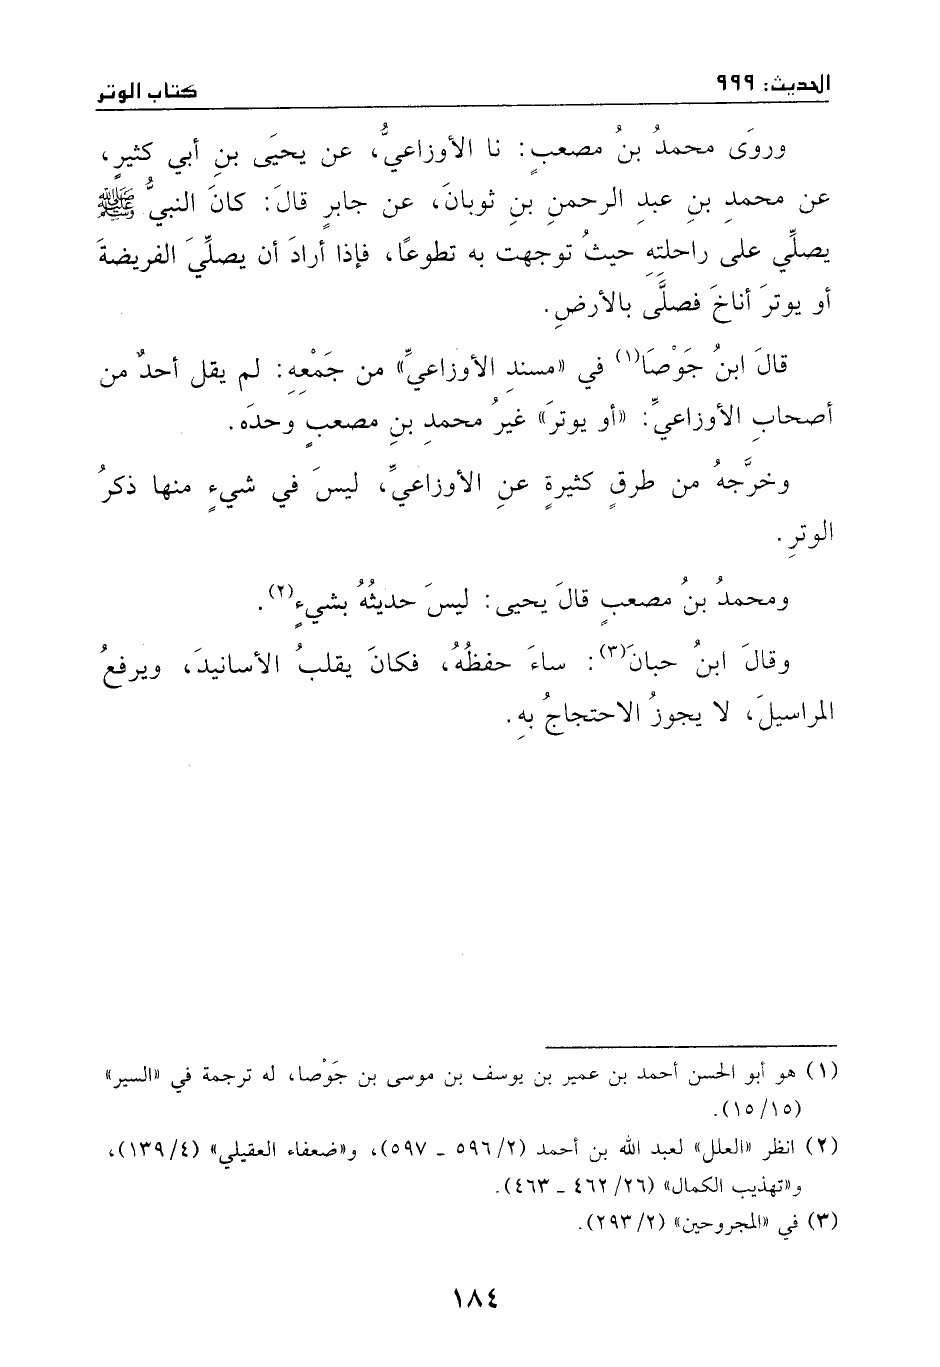 الحديث: ٩٩٩
كتاب الوتر
وروَى محمدُ بنُ مصعبٍ: نا الأوزاعيُّ، عن يحيَى بنِ أبي كثيرٍ،
عن محمدِ بنِ عبدِ الرحمنِ بنِ ثوبانَ، عن جابرٍ قالَ: كانَ النبيُّ ﷺ
يصلِّي على راحلتِهِ حيثُ توجهت به تطوعًا، فإذا أرادَ أن يصلِّيَ الفريضةَ
أو يوترَ أناخَ فصلَّى بالأرضِ.
قالَ ابنُ جَوْصَا(١) في «مسندِ الأوزاعيِّ» من جَمْعِهِ: لم يقل أحدٌ من
أصحابِ الأوزاعيِّ: «أو يوترَ» غيرُ محمدِ بنِ مصعبٍ وحدَه.
وخرَّجهُ من طرقٍ كثيرةٍ عنِ الأوزاعيِّ، ليسَ في شيءٍ منها ذكرُ
الوترِ.
ومحمدُ بنُ مصعبٍ قالَ يحيى: ليسَ حديثُهُ بشيءٍ(٢).
وقالَ ابنُ حبانَ(٣): ساءَ حفظُهُ، فكانَ يقلبُ الأسانيدَ، ويرفعُ
المراسيلَ، لا يجوزُ الاحتجاجُ بهِ.
(١) هو أبو الحسن أحمد بن عمير بن يوسف بن موسى بن جَوْصا، له ترجمة في «السير»
(١٥/١٥).
(٢) انظر «العلل» لعبد الله بن أحمد (٢/ ٥٩٦ ـ ٥٩٧)، و«ضعفاء العقيلي» (٤/ ١٣٩)،
و«تهذيب الكمال» (٢٦/ ٤٦٢ ـ ٤٦٣).
(٣) في «المجروحين» (٢/ ٢٩٣).
١٨٤